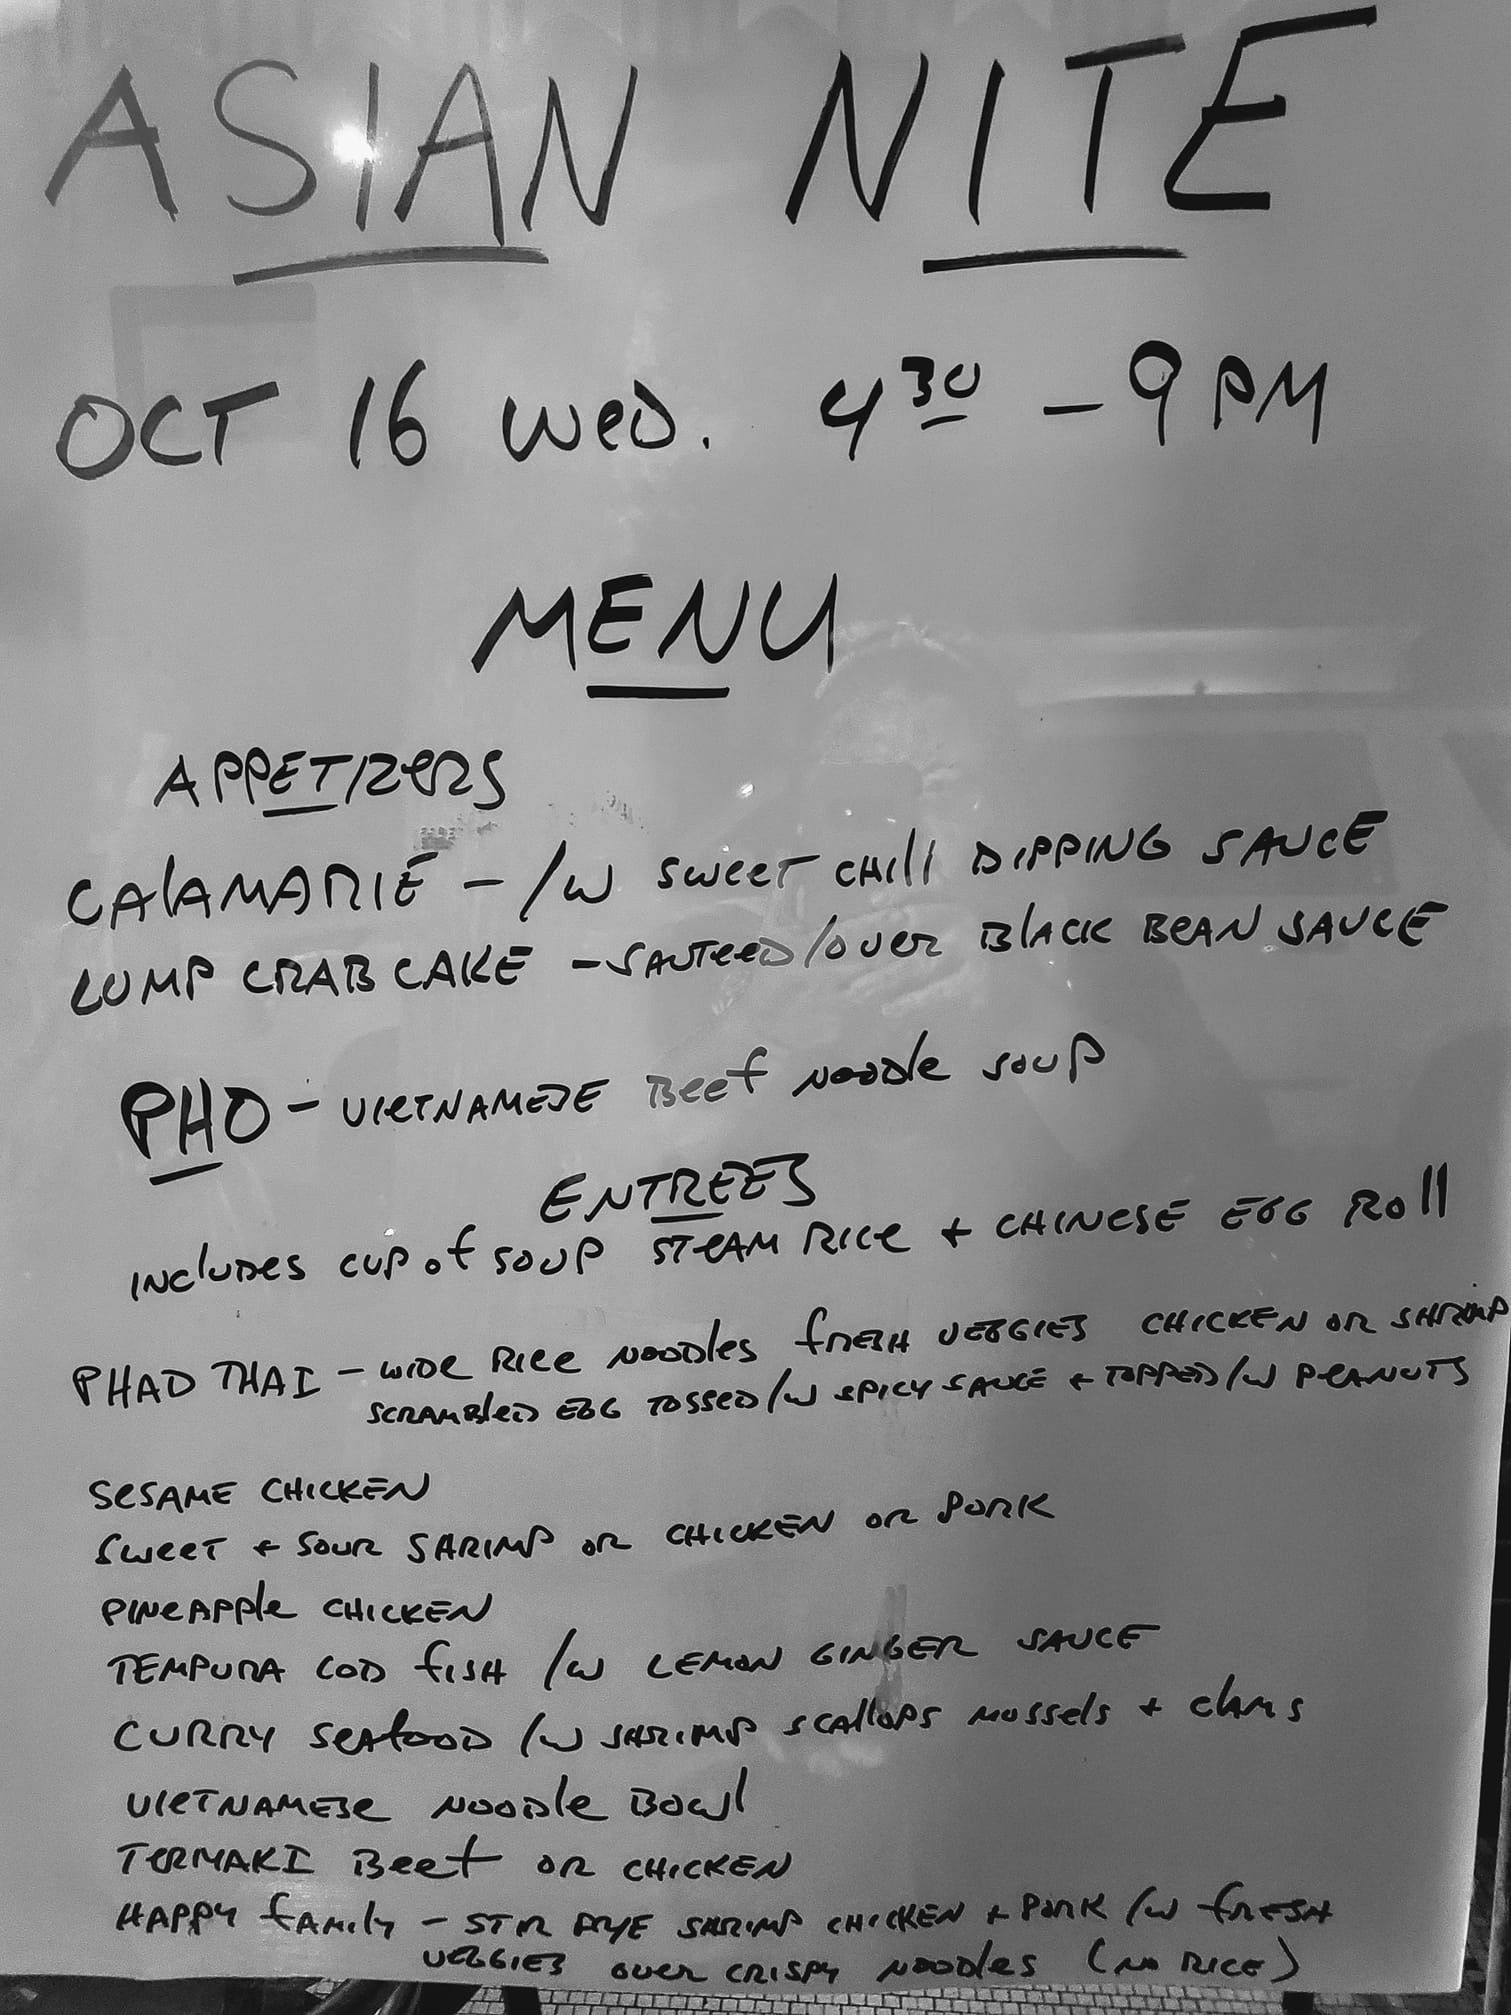 ASIAN NITE
OCT 16 WED. 4 30 - 9 PM
MENU
APPETIZERS
CALAMARIE - /W SWEET CHILI DIPPING SAUCE
LUMP CRAB CAKE - SAUTEED/OVER BLACK BEAN SAUCE
PHO - VIETNAMESE BEEF NOODLE SOUP
ENTREES
INCLUDES CUP OF SOUP STEAM RICE + CHINESE EGG ROLL
PHAD THAI - WIDE RICE NOODLES FRESH VEGGIES CHICKEN OR SHRIMP
SCRAMBLED EGG TOSSED /W SPICY SAUCE + TOPPED /W PEANUTS
SESAME CHICKEN
SWEET + SOUR SHRIMP OR CHICKEN OR PORK
PINEAPPLE CHICKEN
TEMPURA COD FISH /W LEMON GINGER SAUCE
CURRY SEAFOOD /W SHRIMP SCALLOPS MUSSELS + CLAMS
VIETNAMESE NOODLE BOWL
TERMAKI BEEF OR CHICKEN
HAPPY FAMILY - STIR FRYE SHRIMP CHICKEN + PORK /W FRESH
VEGGIES OVER CRISPY NOODLES (NO RICE)